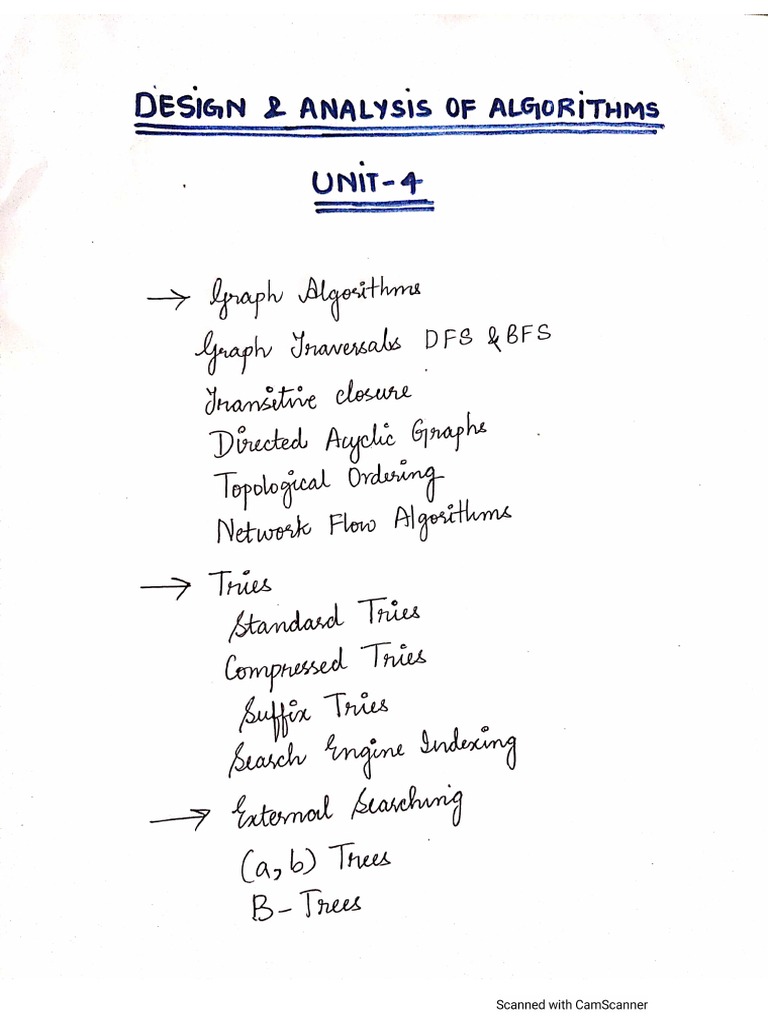 DESIGN & ANALYSIS OF ALGORITHMS
UNIT-4
→ Graph Algorithms
Graph Traversals DFS & BFS
Transitive closure
Directed Acyclic Graphs
Topological Ordering
Network Flow Algorithms
→ Tries
Standard Tries
Compressed Tries
Suffix Tries
Search Engine Indexing
→ External Searching
(a,b) Trees
B-Trees
Scanned with CamScanner